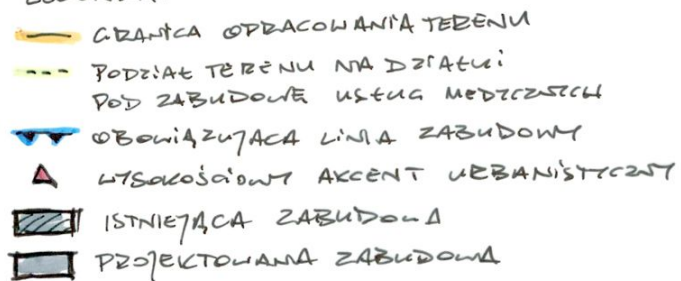 GRANICA OPRACOWANIA TERENU
PODZIAŁ TERENU NA DZIAŁKI
POD ZABUDOWĘ USŁUG MEDYCZNYCH
OBOWIĄZUJĄCA LINIA ZABUDOWY
WYSOKOŚCIOWY AKCENT URBANISTYCZNY
ISTNIEJĄCA ZABUDOWA
PROJEKTOWANA ZABUDOWA